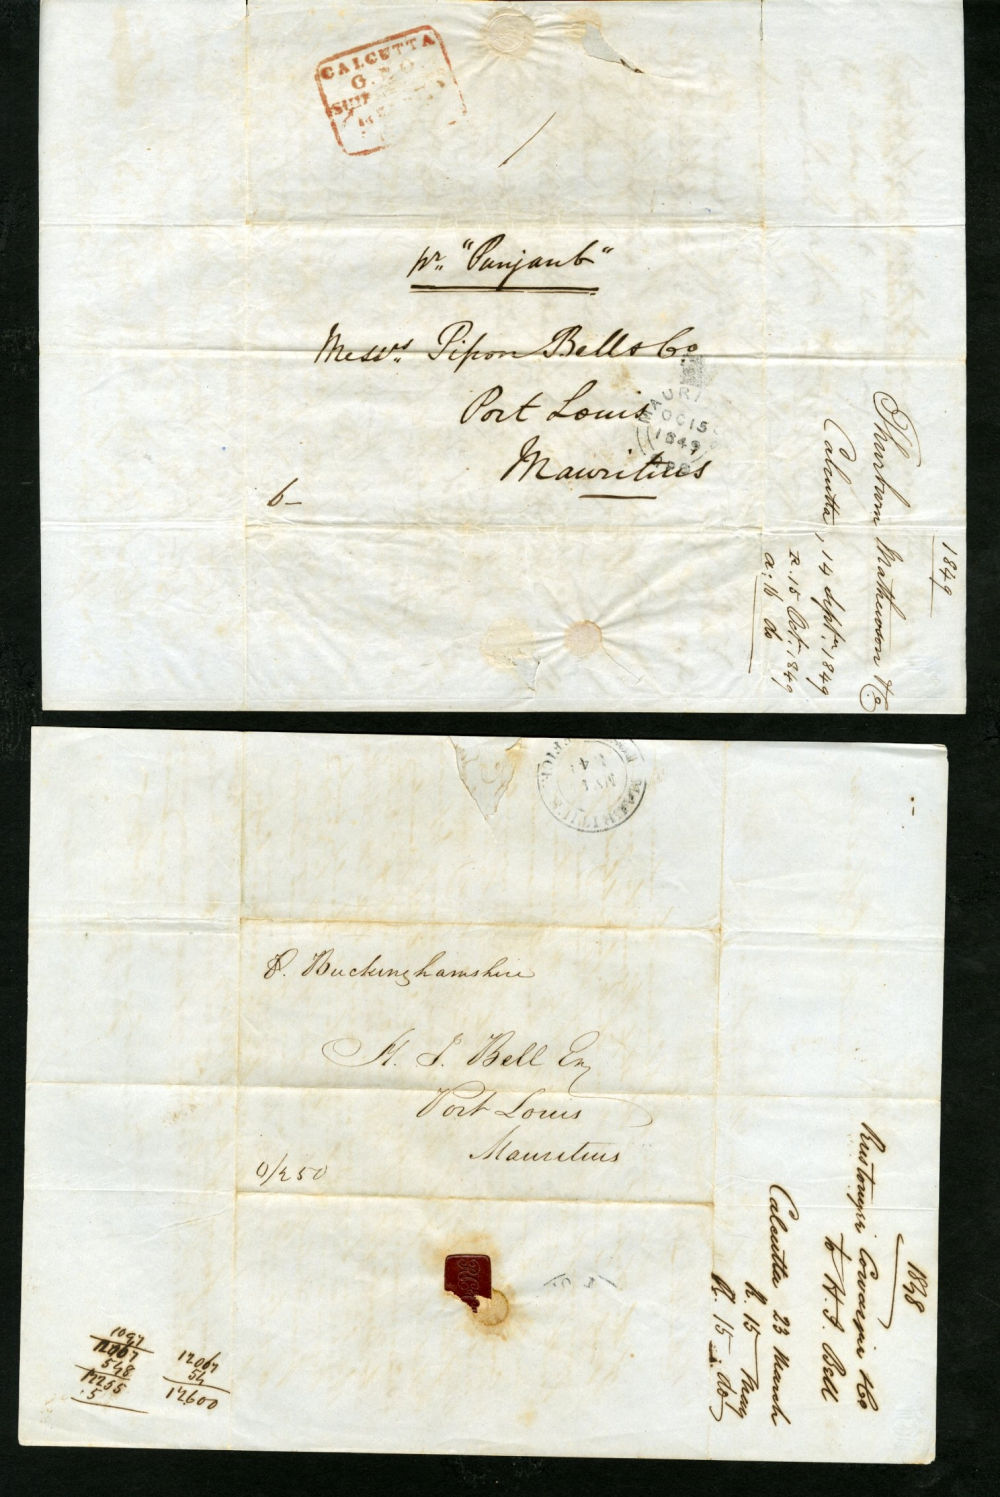 CALCUTTA
G.P.O.
SHIP
pr. "Punjaub"
Messrs. Pipon Bell & Co
Port Louis
Mauritius
6–
MAURI
OC 15
1849
1849
Thurburn Mathewson & Co
Calcutta, 14 Septr. 1849
R. 15 Octr. 1849
a: 16 do
MAURITIUS
OFFICE
P. Buckinghamshire
H. J. Bell Esq
Port Louis
Mauritius
0/250
1848
Rustomjee Cowasjee & Co
to H. J. Bell
Calcutta 23 March
R. 15 May
R. 15 do
1097
548
12255
.5
12067
54
12600